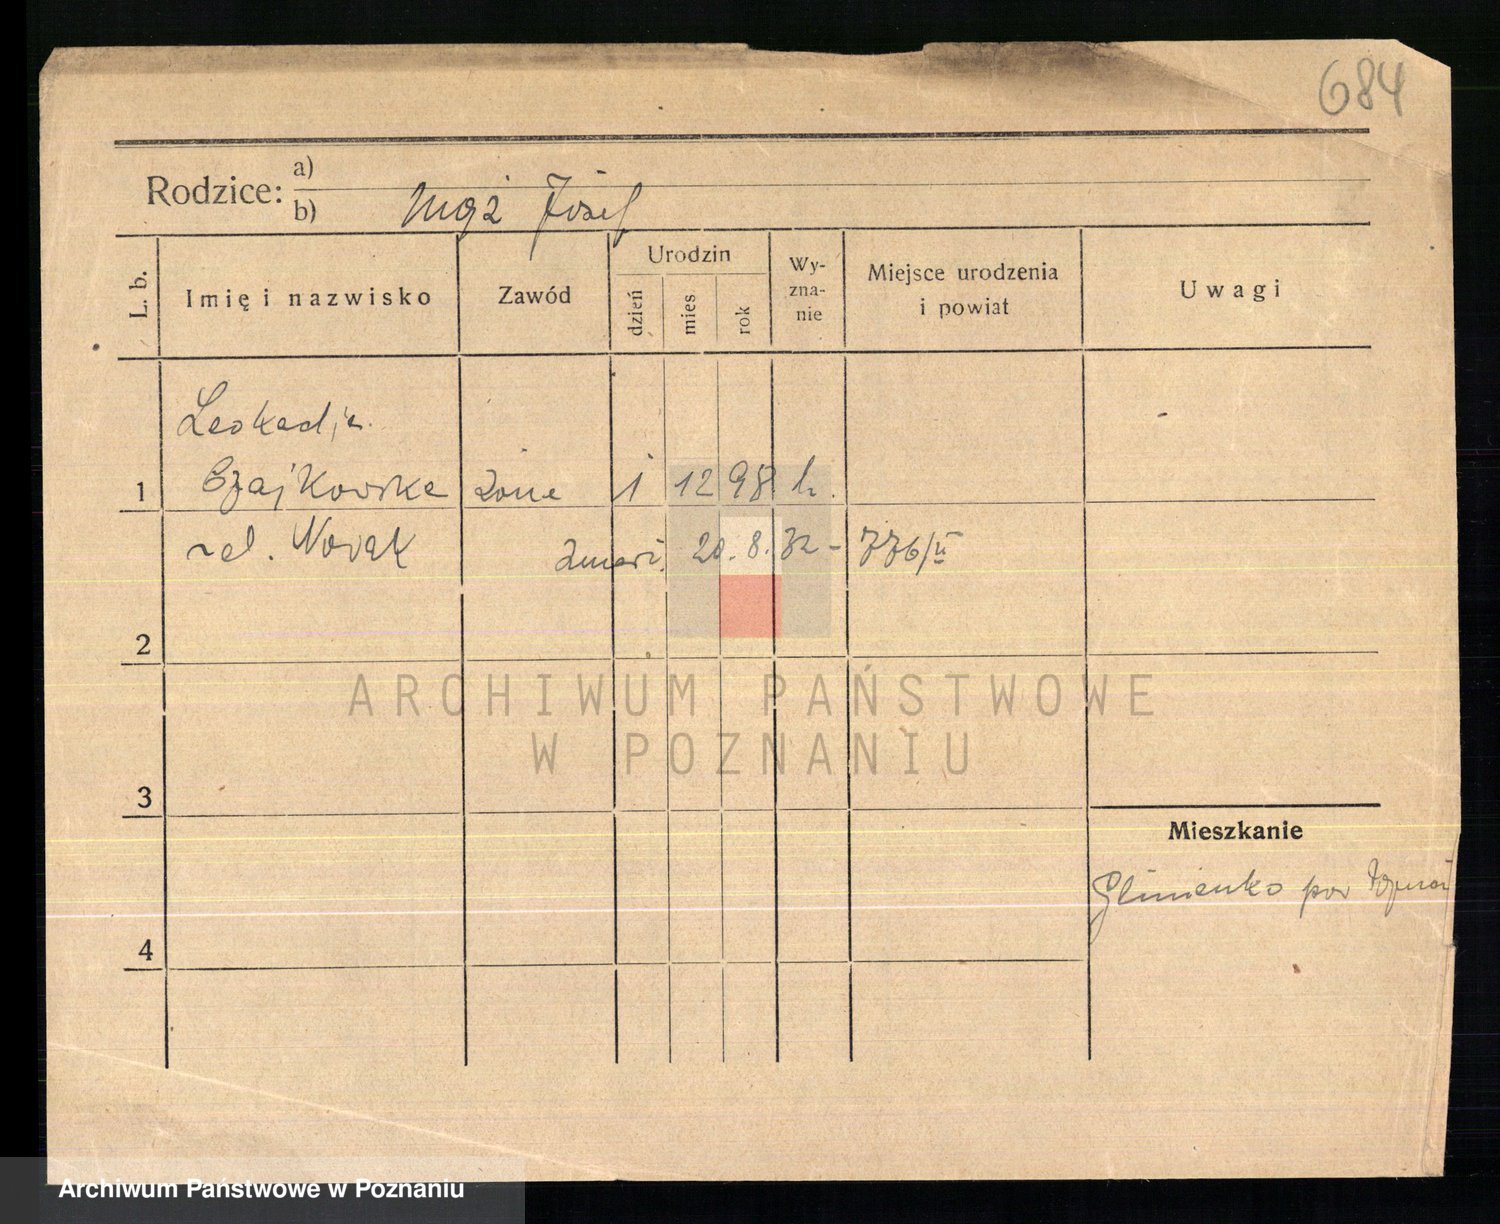 684
Rodzice: a)
b) Mąż Józef
L. b. Imię i nazwisko Zawód Urodzin dzień mies rok Wy-zna-nie Miejsce urodzenia i powiat Uwagi
Leokadja
1 Czajkowska żona 1 12 98 k.
Nowak 20. 8. 32 - 776/II
2
ARCHIWUM PAŃSTWOWE
W POZNANIU
3
Mieszkanie
Glinienko pow
4
Archiwum Państwowe w Poznaniu